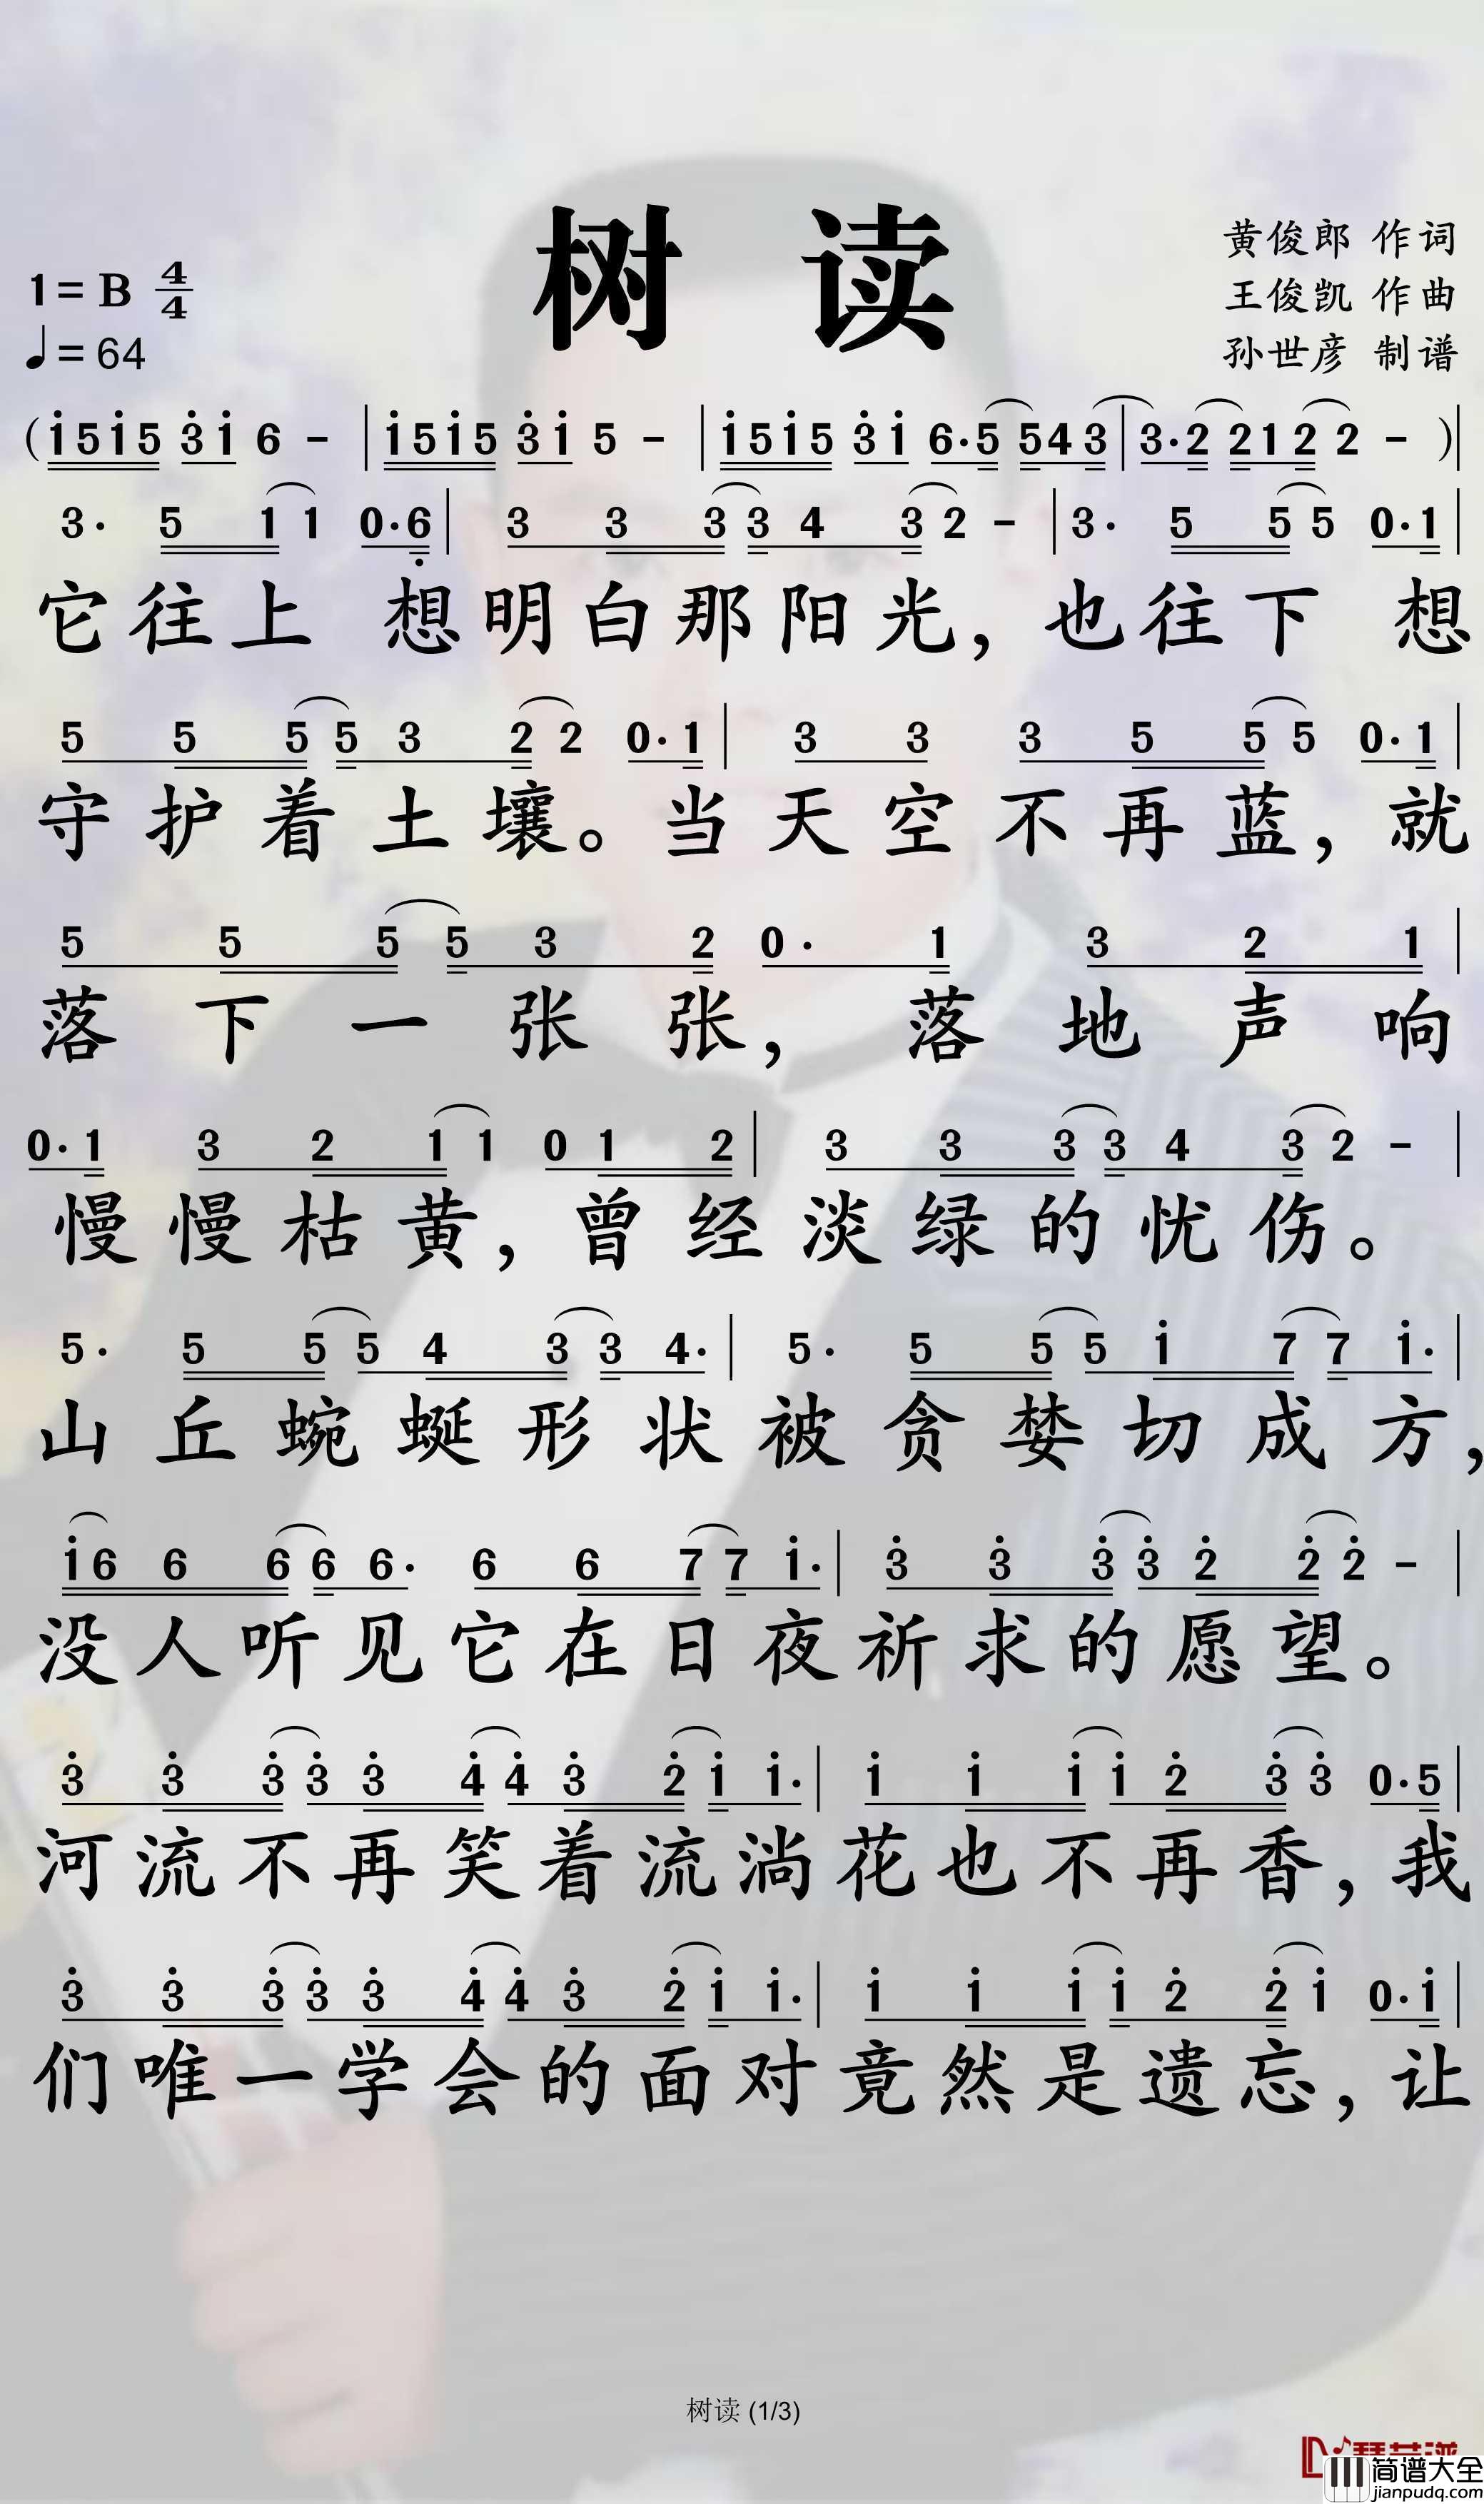 树 读
黄俊郎 作词
王俊凯 作曲
孙世彦 制谱
1= B 4/4
♩= 64
( i 5 i 5 3 i 6 - | i 5 i 5 3 i 5 - | i 5 i 5 3 i 6· 5 5 4 3 | 3· 2 2 1 2 2 - )|
3· 5 1 1 0· 6 | 3 3 3 3 4 3 2 - | 3· 5 5 5 0· 1 |
它往上 想明白那阳光，也往下 想
5 5 5 5 3 2 2 0· 1 | 3 3 3 5 5 5 0· 1 |
守护着土壤。当天空不再蓝，就
5 5 5 5 3 2 0· 1 3 2 1 |
落下一张张，落地声响
0· 1 3 2 1 1 0 1 2 | 3 3 3 3 4 3 2 - |
慢慢枯黄，曾经淡绿的忧伤。
5· 5 5 5 4 3 3 4· | 5· 5 5 5 i 7 7 i· |
山丘蜿蜒形状被贪婪切成方，
i 6 6 6 6 6· 6 6 7 7 i· | 3 3 3 3 2 2 2 - |
没人听见它在日夜祈求的愿望。
3 3 3 3 3 4 4 3 2 i i· | i i i i 2 3 3 0· 5 |
河流不再笑着流淌花也不再香，我
3 3 3 3 3 4 4 3 2 i i· | i i i i 2 2 i 0· i |
们唯一学会的面对竟然是遗忘，让
树读 (1/3)
简谱大全
jianpudq.com